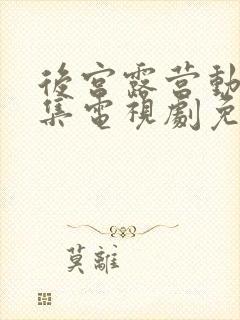 後宮露营動
集電視劇免
莫離